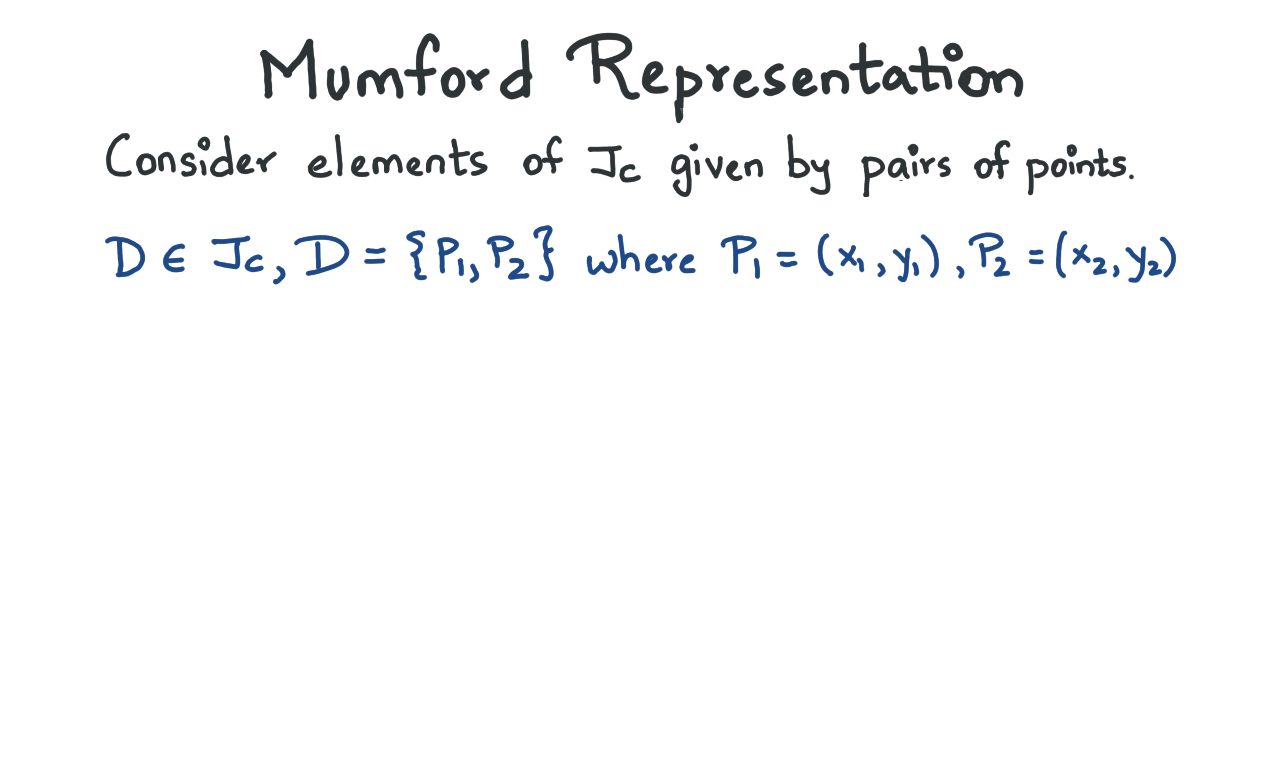 Mumford Representation
Consider elements of J_C given by pairs of points.
D ∈ J_C, D = {P₁, P₂} where P₁ = (x₁, y₁), P₂ = (x₂, y₂)